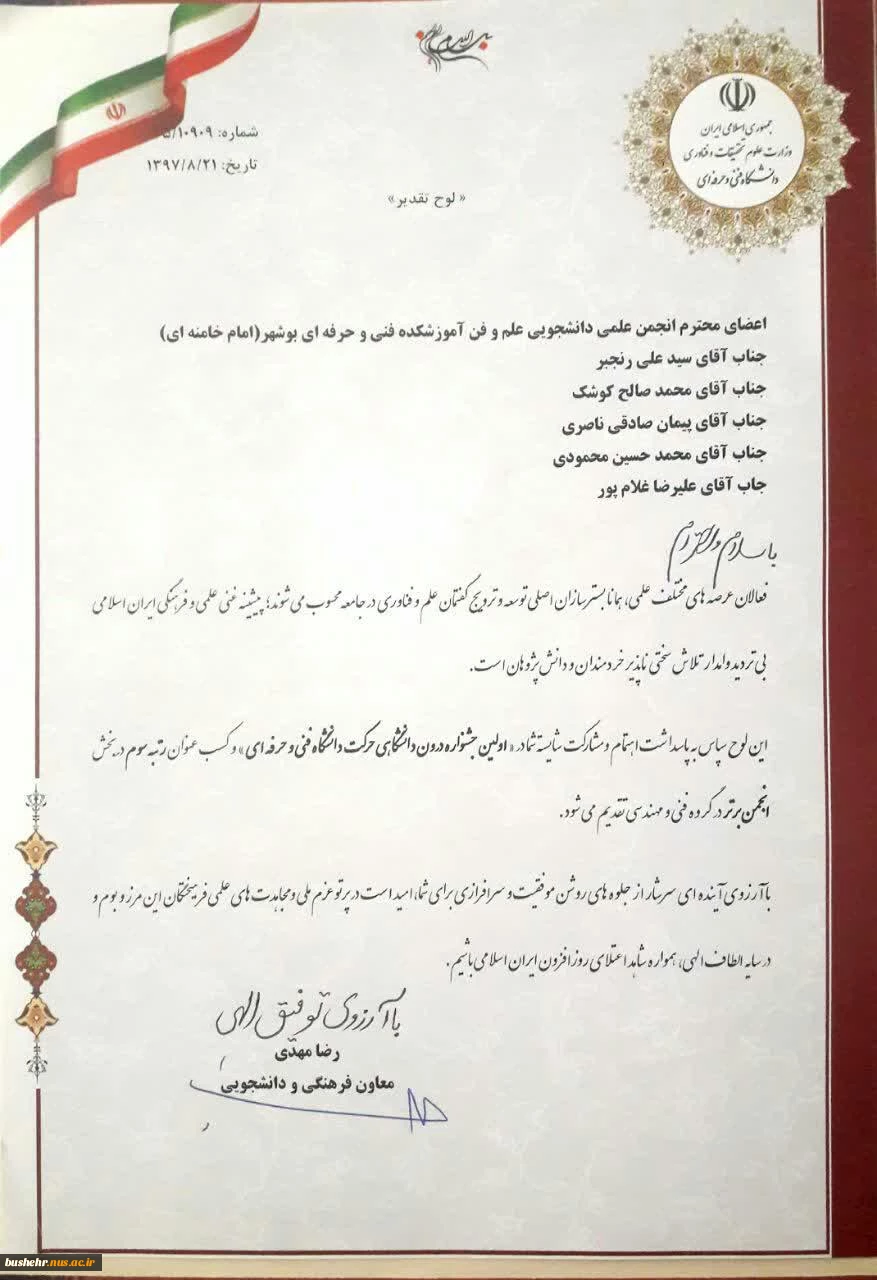 جمهوری اسلامی ایران
وزارت علوم تحقیقات و فناوری
دانشگاه فنی و حرفه ای
شماره: ۵/۱۰۹۰۹
تاریخ: ۱۳۹۷/۸/۲۱
« لوح تقدیر»
اعضای محترم انجمن علمی دانشجویی علم و فن آموزشکده فنی و حرفه ای بوشهر(امام خامنه ای)
جناب آقای سید علی رنجبر
جناب آقای محمد صالح کوشک
جناب آقای پیمان صادقی ناصری
جناب آقای محمد حسین محمودی
جاب آقای علیرضا غلام پور
با سلام و احترام
فعالان عرصه های مختلف علمی، همانا بسترسازان اصلی توسعه و ترویج گفتمان علم و فناوری در جامعه محسوب می شوند؛ پیشینه غنی علمی و فرهنگی ایران اسلامی
بی تردید وامدار تلاش سختی ناپذیر خردمندان و دانش پژوهان است.
این لوح سپاس به پاسداشت اهتمام و مشارکت شایسته شما در « اولین جشنواره درون دانشگاهی حرکت دانشگاه فنی و حرفه ای» و کسب عنوان رتبه سوم در بخش
انجمن برتر در گرده فنی و مهندسی تقدیم می شود.
با آرزوی آینده ای سرشار از جلوه های روشن موفقیت و سرافرازی برای شما، امید است در پرتو عزم ملی و مجاهدت های علمی فرهیختگان این مرز و بوم و
در سایه الطاف الهی، همواره شاهد اعتلای روز افزون ایران اسلامی باشیم.
با آرزوی توفیق الهی
رضا مهدی
معاون فرهنگی و دانشجویی
bushehr.nus.ac.ir